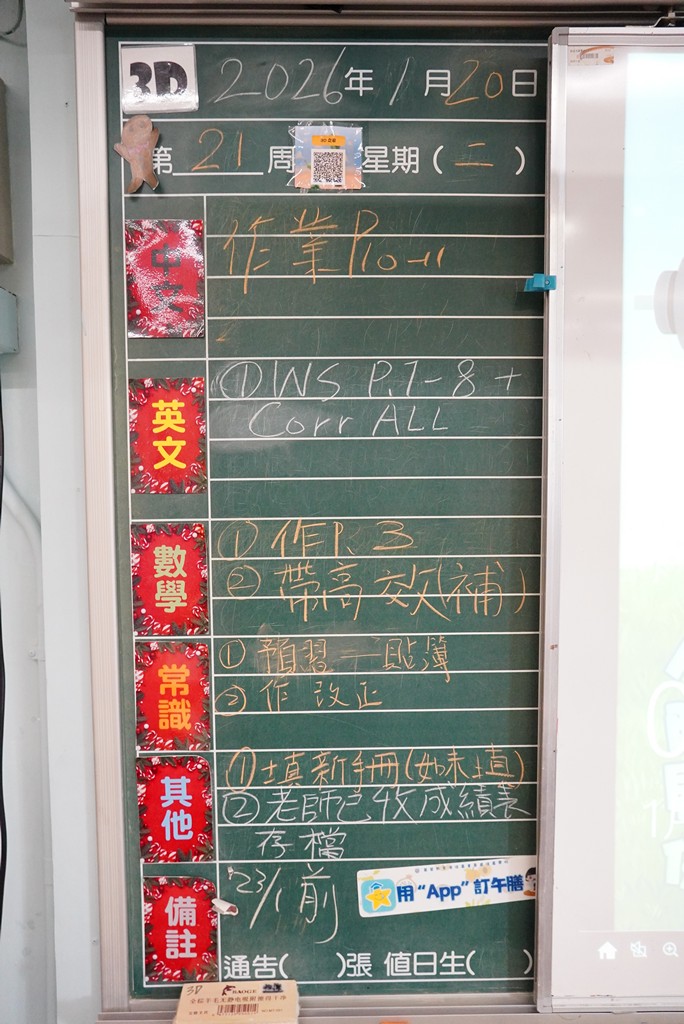 3D 2026年1月20日
第21周 星期(二)
中文
作業P10-11
英文
①WS P.7-8 +
Corr ALL
數學
① 作P. 3
② 帶高效(補)
常識
① 預習一貼簿
② 作改正
其他
① 填新手冊(如未填)
② 老師已收成績表
存檔
備註
23/1前
用“App”訂午膳
通告( )張 值日生( )
3D
BAOGE